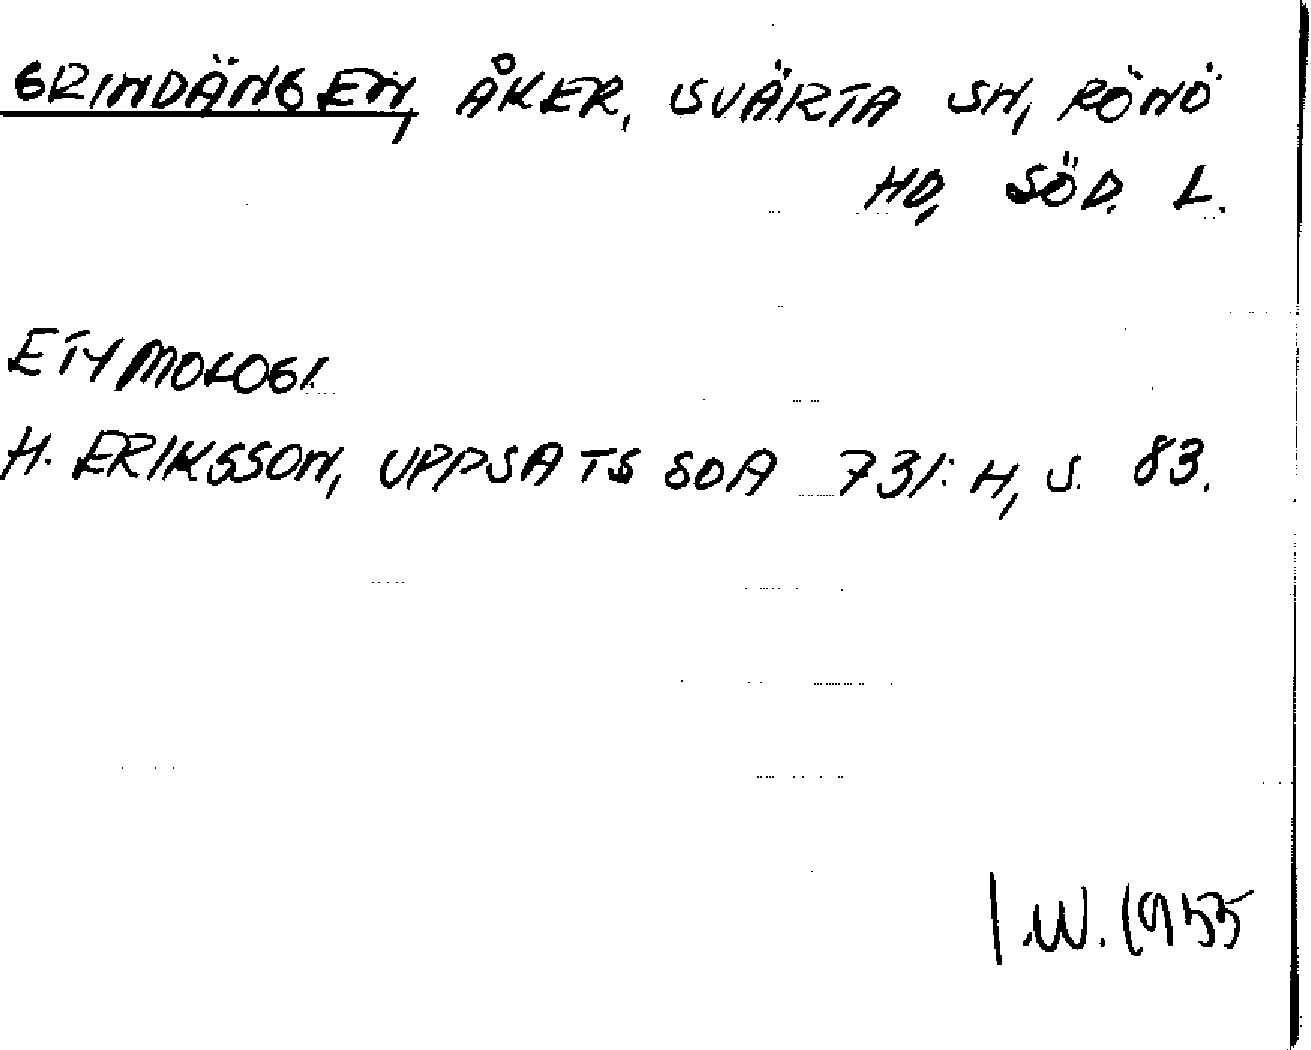 GRINDÄNGEN, ÅKER, SVÄRTA SN, RÖNÖ
HD, SÖD. L.
ETYMOLOGI.
H. ERIKSSON, UPPSATS SOA 731:H, S. 83.
I.W. 1955